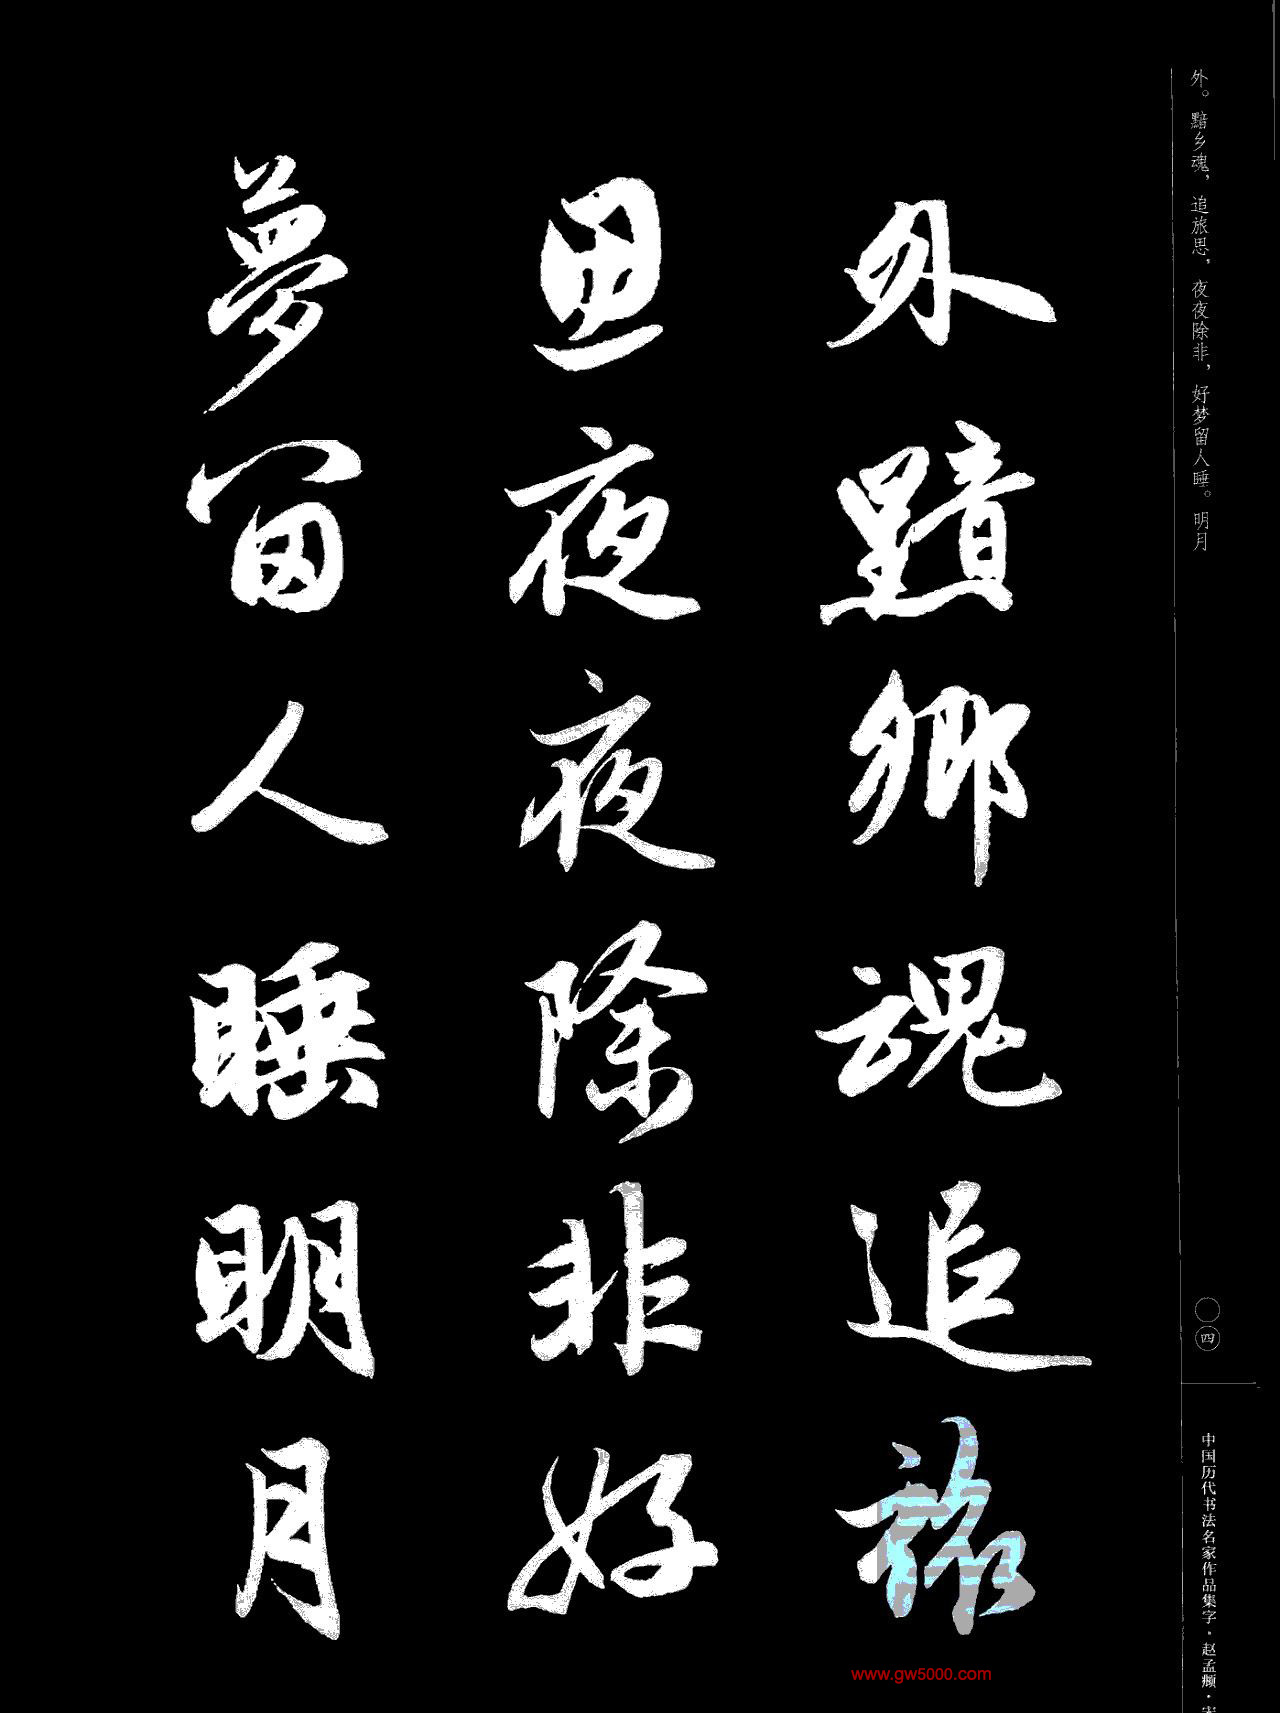 外。黯乡魂，追旅思，夜夜除非，好梦留人睡。明月
外黯鄉魂追旅
思夜夜除非好
夢留人睡明月
〇四
中国历代书法名家作品集字·赵孟頫·宋
www.gw5000.com